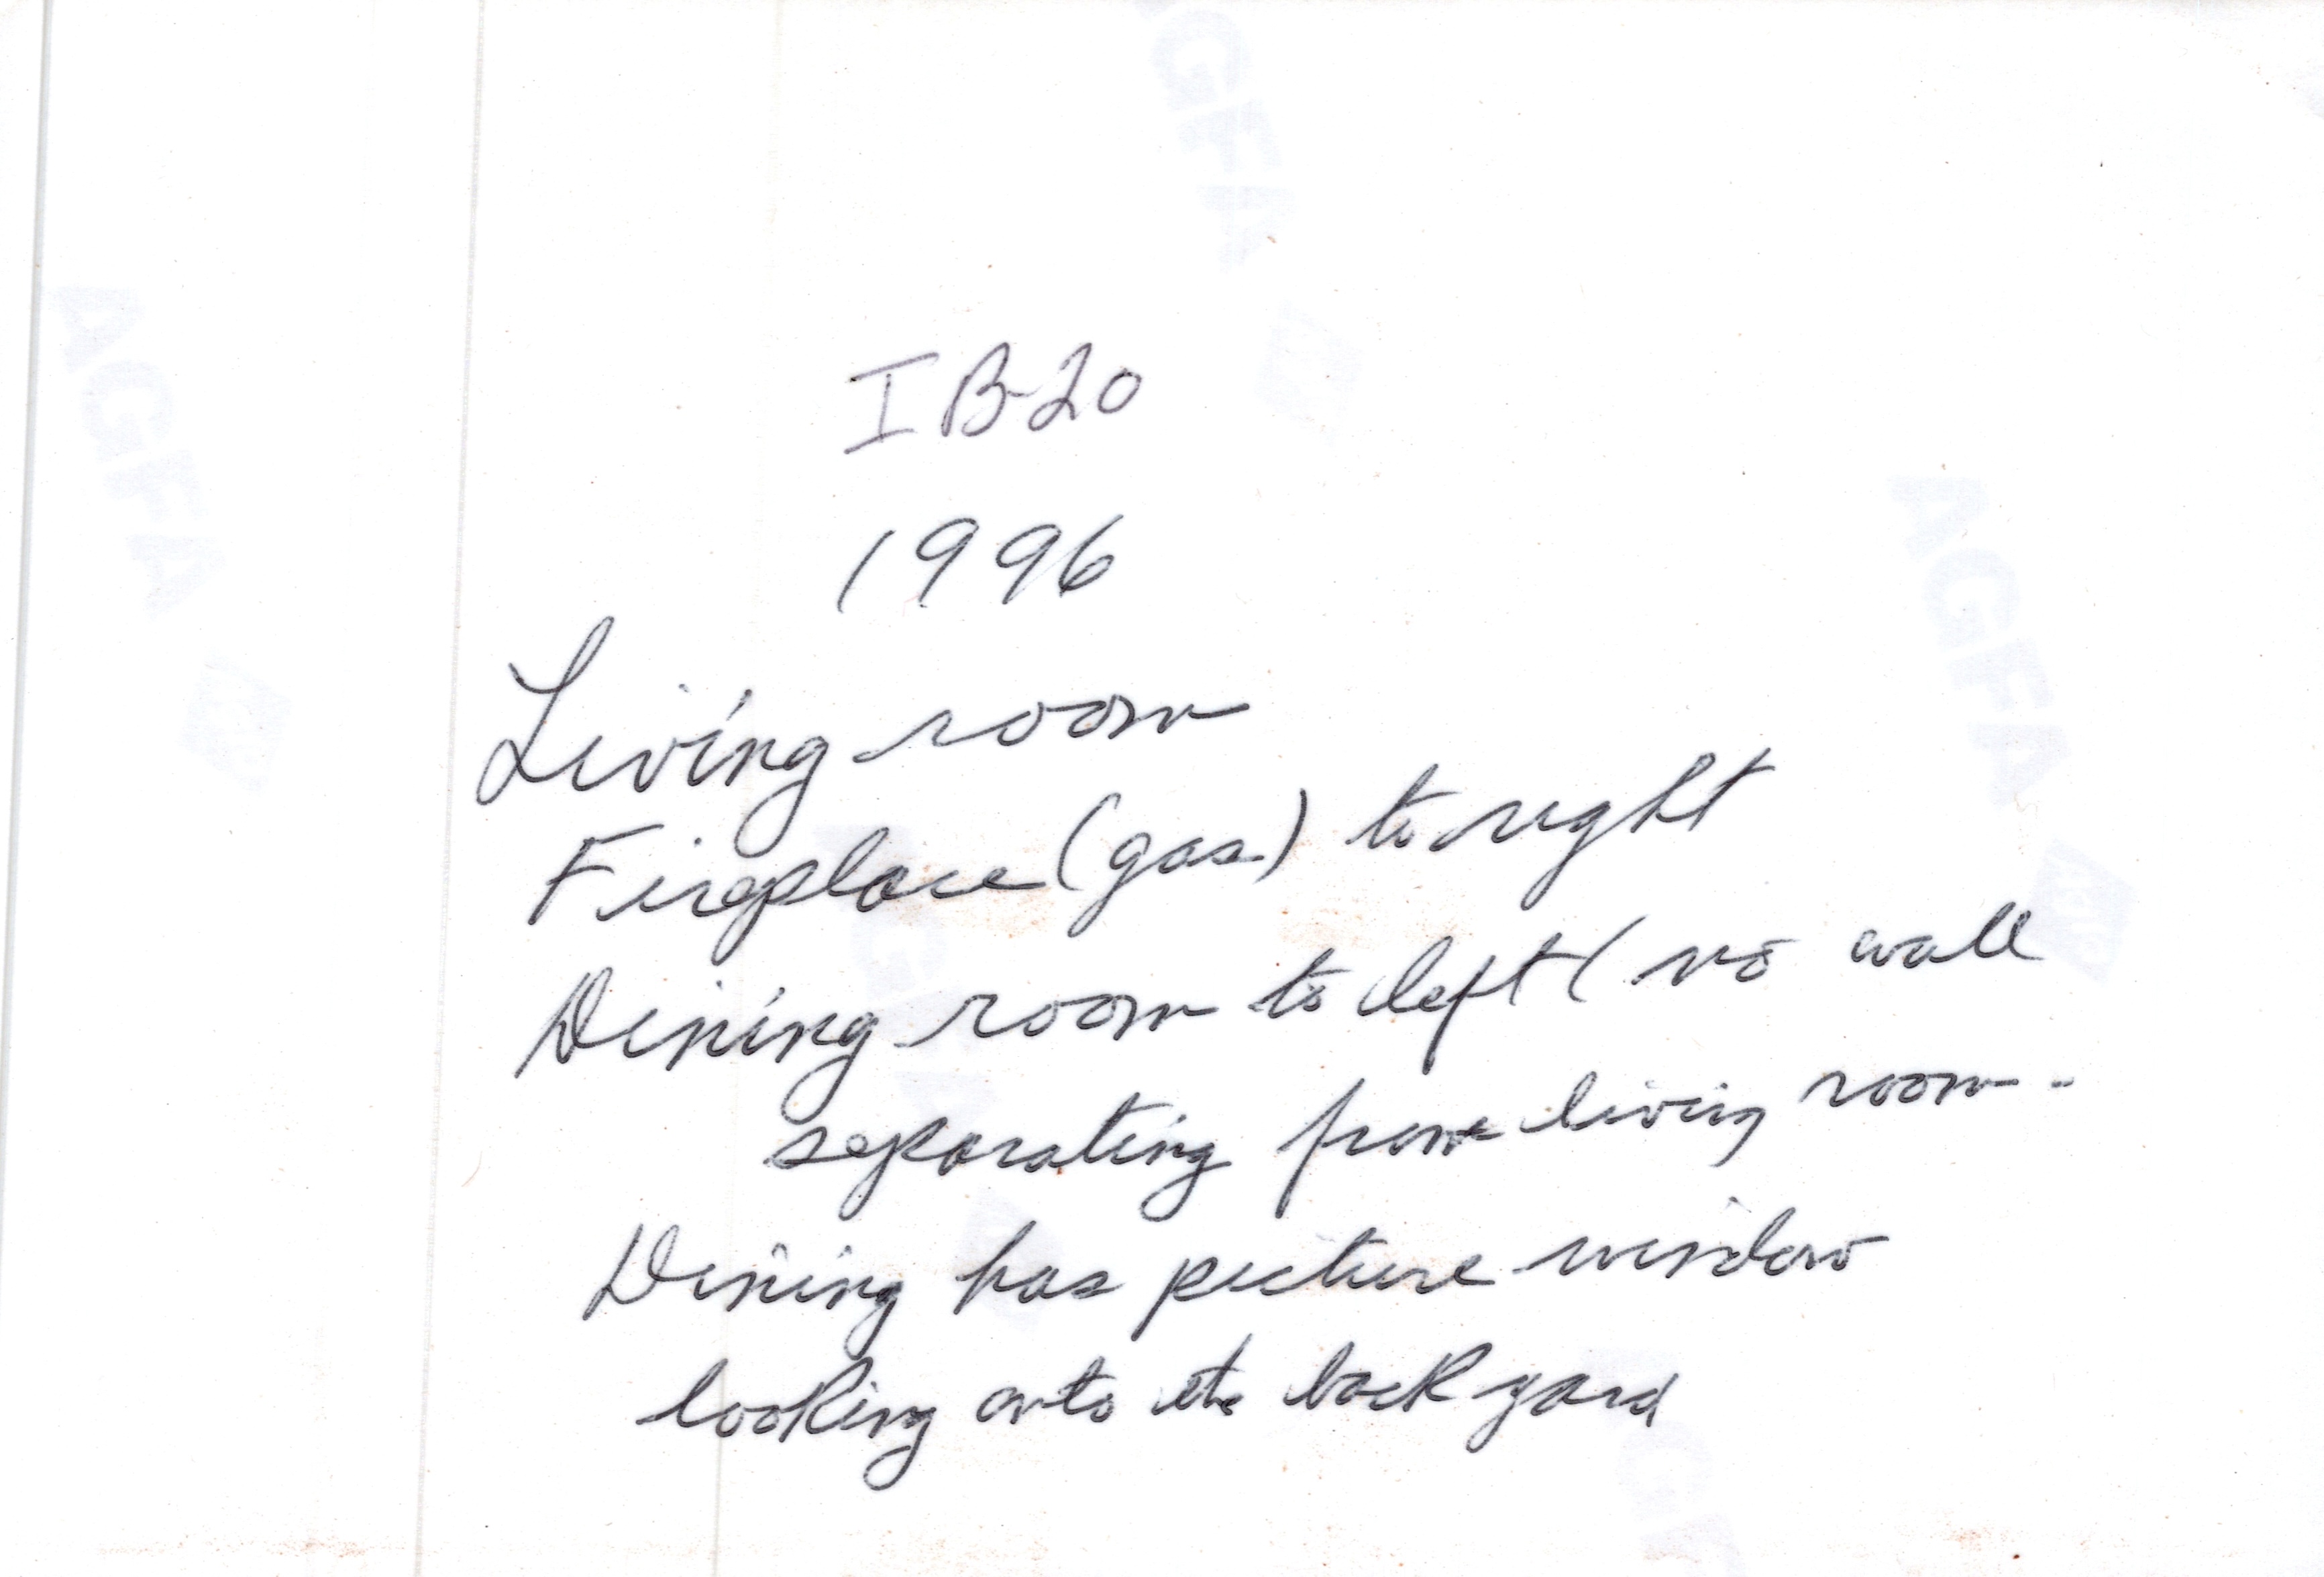 IB-20
1996
Living room
Fireplace (gas) to right
Dining room to left ( no wall
separating from living room -
Dining has picture window
looking onto the back yard
AGFA
AGFA
AGFA